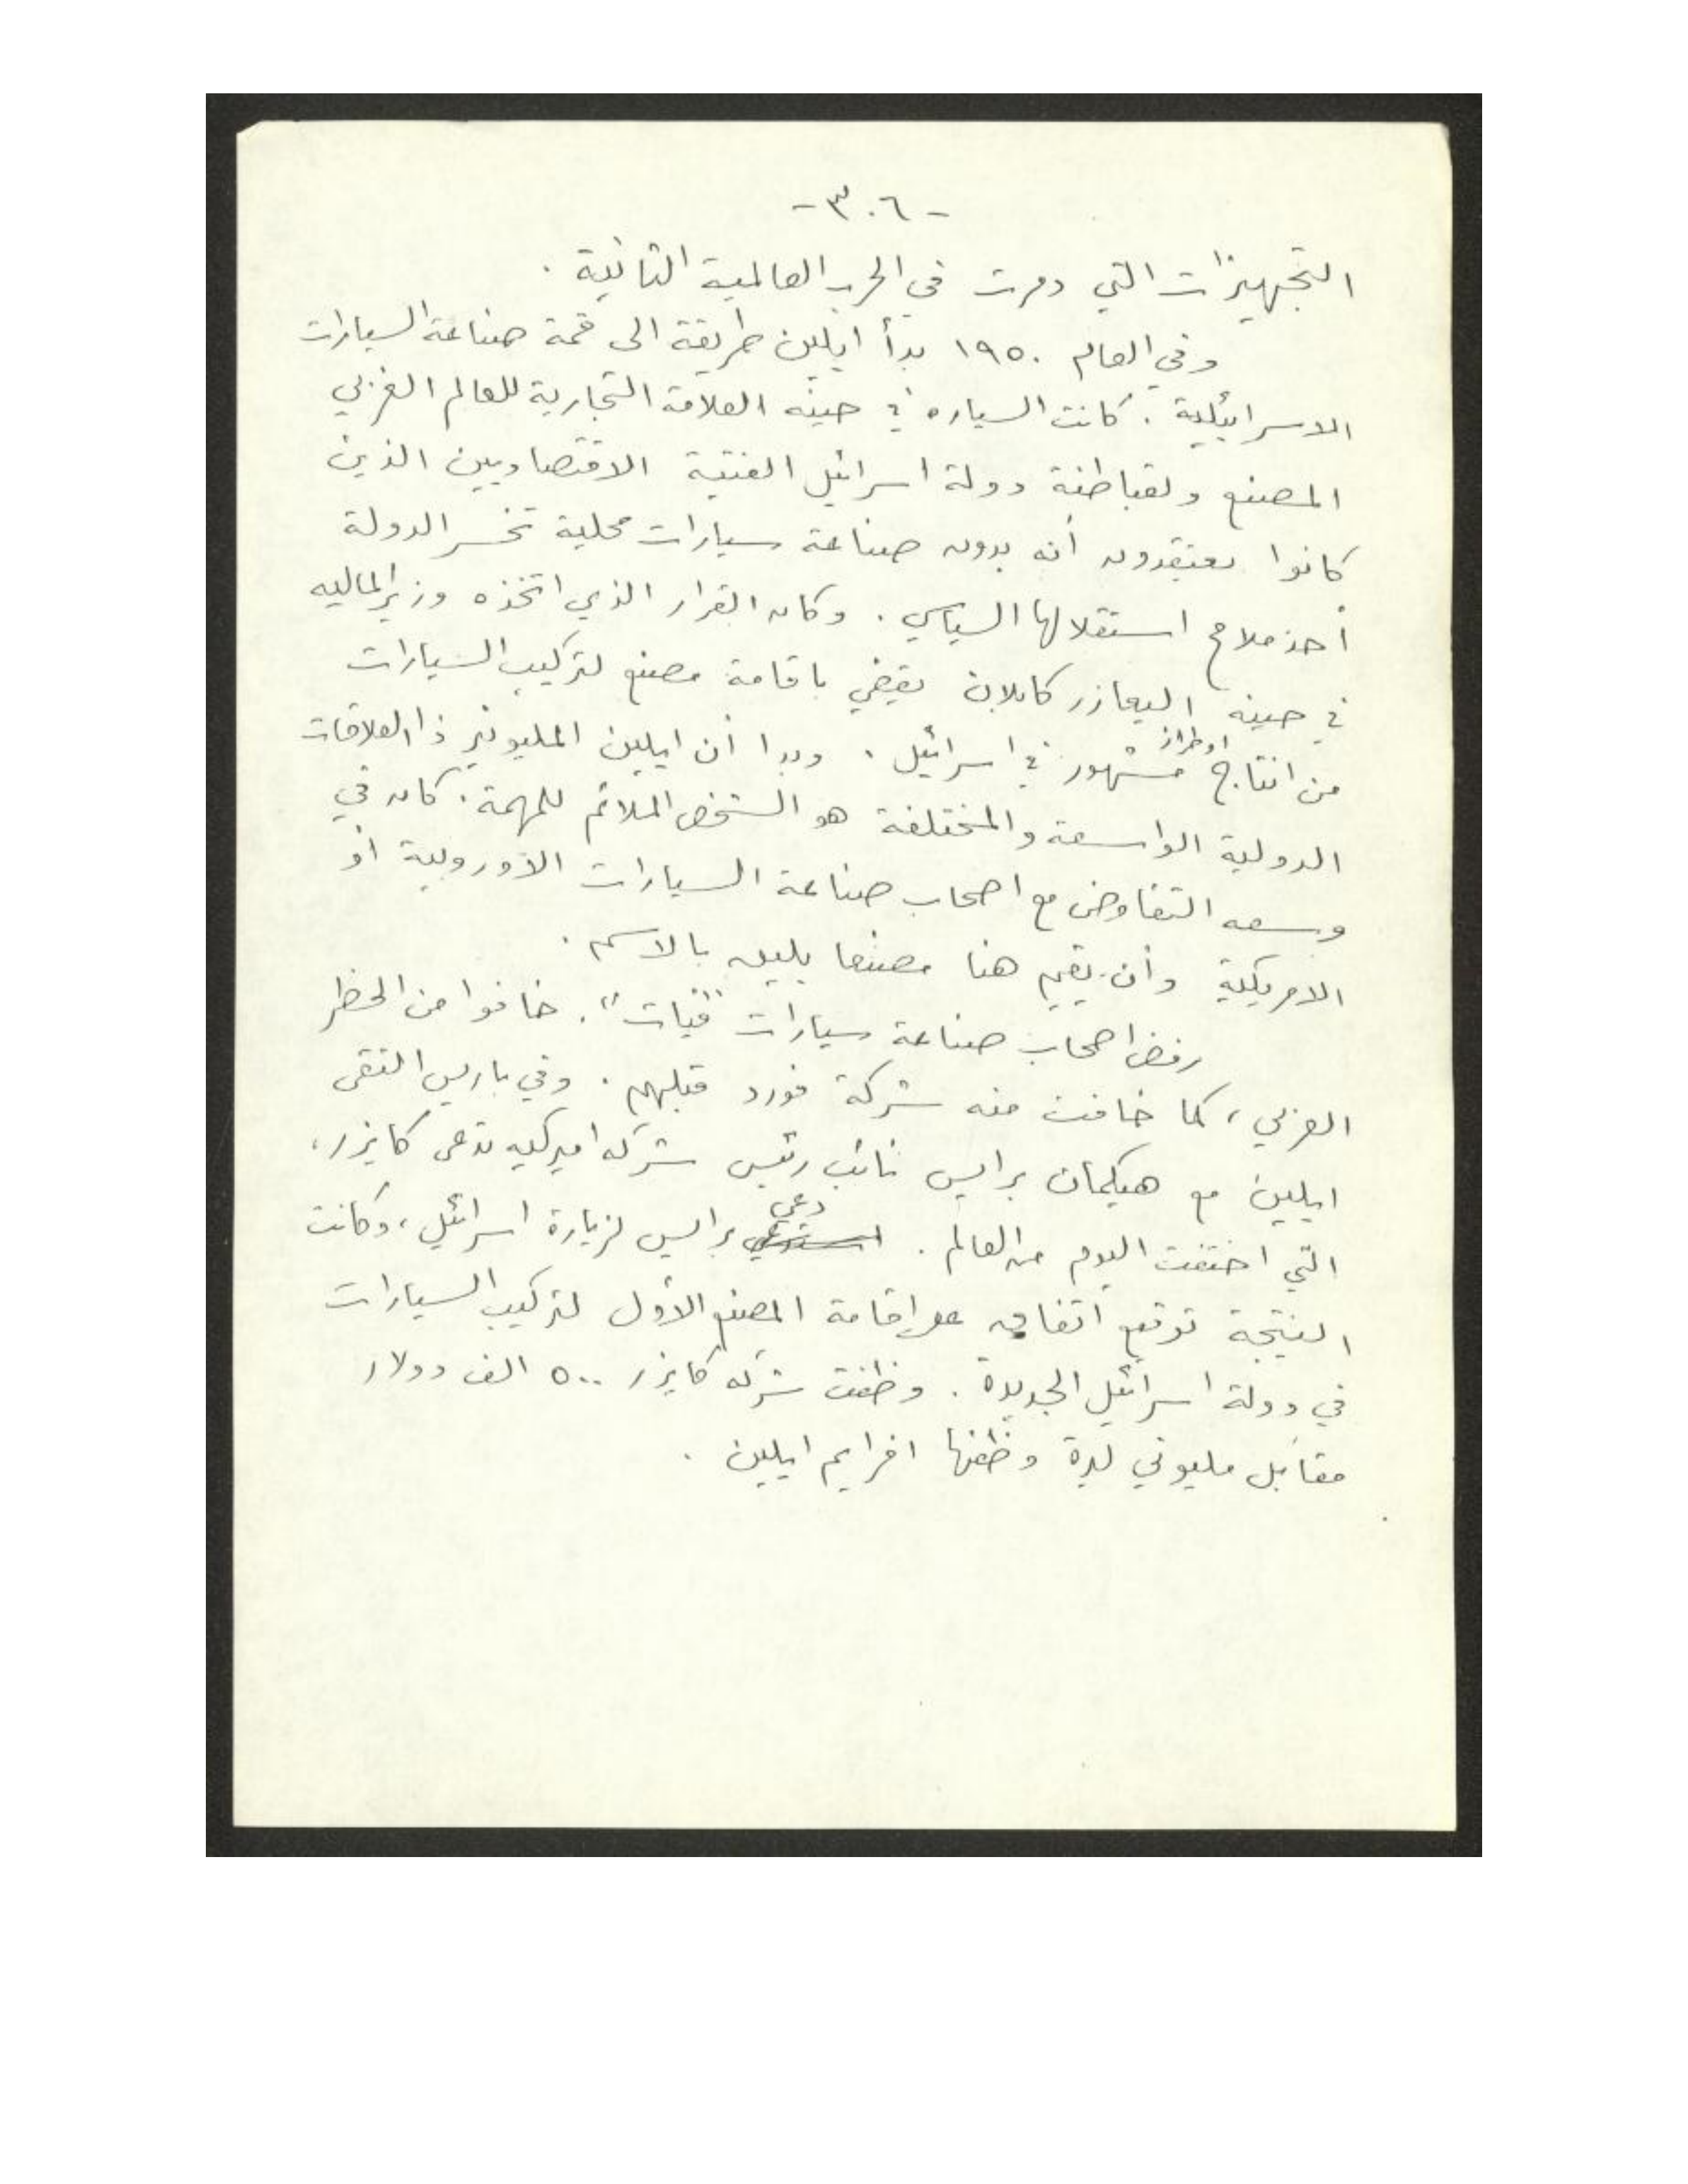 -٣٠٦-
التجهيزات التي دمرت في الحرب العالمية الثانية .
وفي العام ١٩٥٠ بدأ ايلين طريقة الى قمة صناعة السيارات
الاسرائيلية . كانت السياره في حينه العلامة التجارية للعالم الغربي
المصنع ولقباطنة دولة اسرائيل الفتية الاقتصاديين الذين
كانوا يعتقدون أنه بدون صناعة سيارات محلية تخسر الدولة
أحد ملامح استقلالها السياسي . وكان القرار الذي اتخذه وزير الماليه
في حينه اليعازر كابلان يقضي باقامة مصنع لتركيب السيارات
او طراز
من انتاج مشهور في اسرائيل . وبدا أن ايلين المليونير ذا العلاقات
الدولية الواسعة والمختلفة هو الشخص الملائم للمهمة . كان في
وسعه التفاوض مع اصحاب صناعة السيارات الاوروبية أو
الامريكية وأن يقيم هنا مصنعا يليق بالاسم .
رفض اصحاب صناعة سيارات "فيات" . خافوا من الحظر
العربي ، كما خافت منه شركة فورد قبلهم . وفي باريس التقى
ايلين مع هيكمان برايس نائب رئيس شركه اميركيه تدعى كايزر ،
دعي
التي اختفت اليوم من العالم . برايس لزيارة اسرائيل ، وكانت
النتيجة توقيع اتفاق على إقامة المصنع الأول لتركيب السيارات
في دولة اسرائيل الجديدة . وظفت شركه كايزر ٥٠٠ الف دولار
مقابل مليوني ليرة وظفها افرايم ايلين .